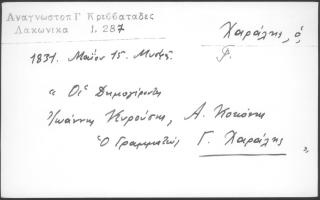 Αναγνωστοπ Γ Κριββαταδες
Λακωνικα 1, 287
Χαράλης, ὁ
Γ.
1831. Μαΐου 15. Μυσ
« Οἱ Δημογέροντες
Ἰωάννης Κυρούσης, Α. Κοκόνης
Ὁ Γραμματεύς Γ. Χαράλης »